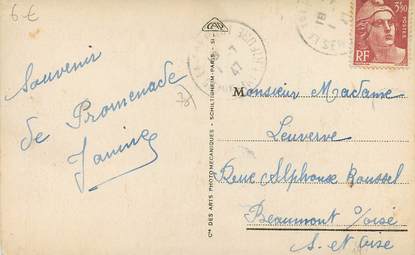 6-€
Souvenir
de Promenade
Janine
Cie DES ARTS PHOTOMECANIQUES - SCHILTIGHEIM-PARIS - SI-
3F50
POSTES
RF
7
47
18
Monsieur Madame
Leuverve
Rue Alphonse Roussel
Beaumont s/oise
S. et Oise